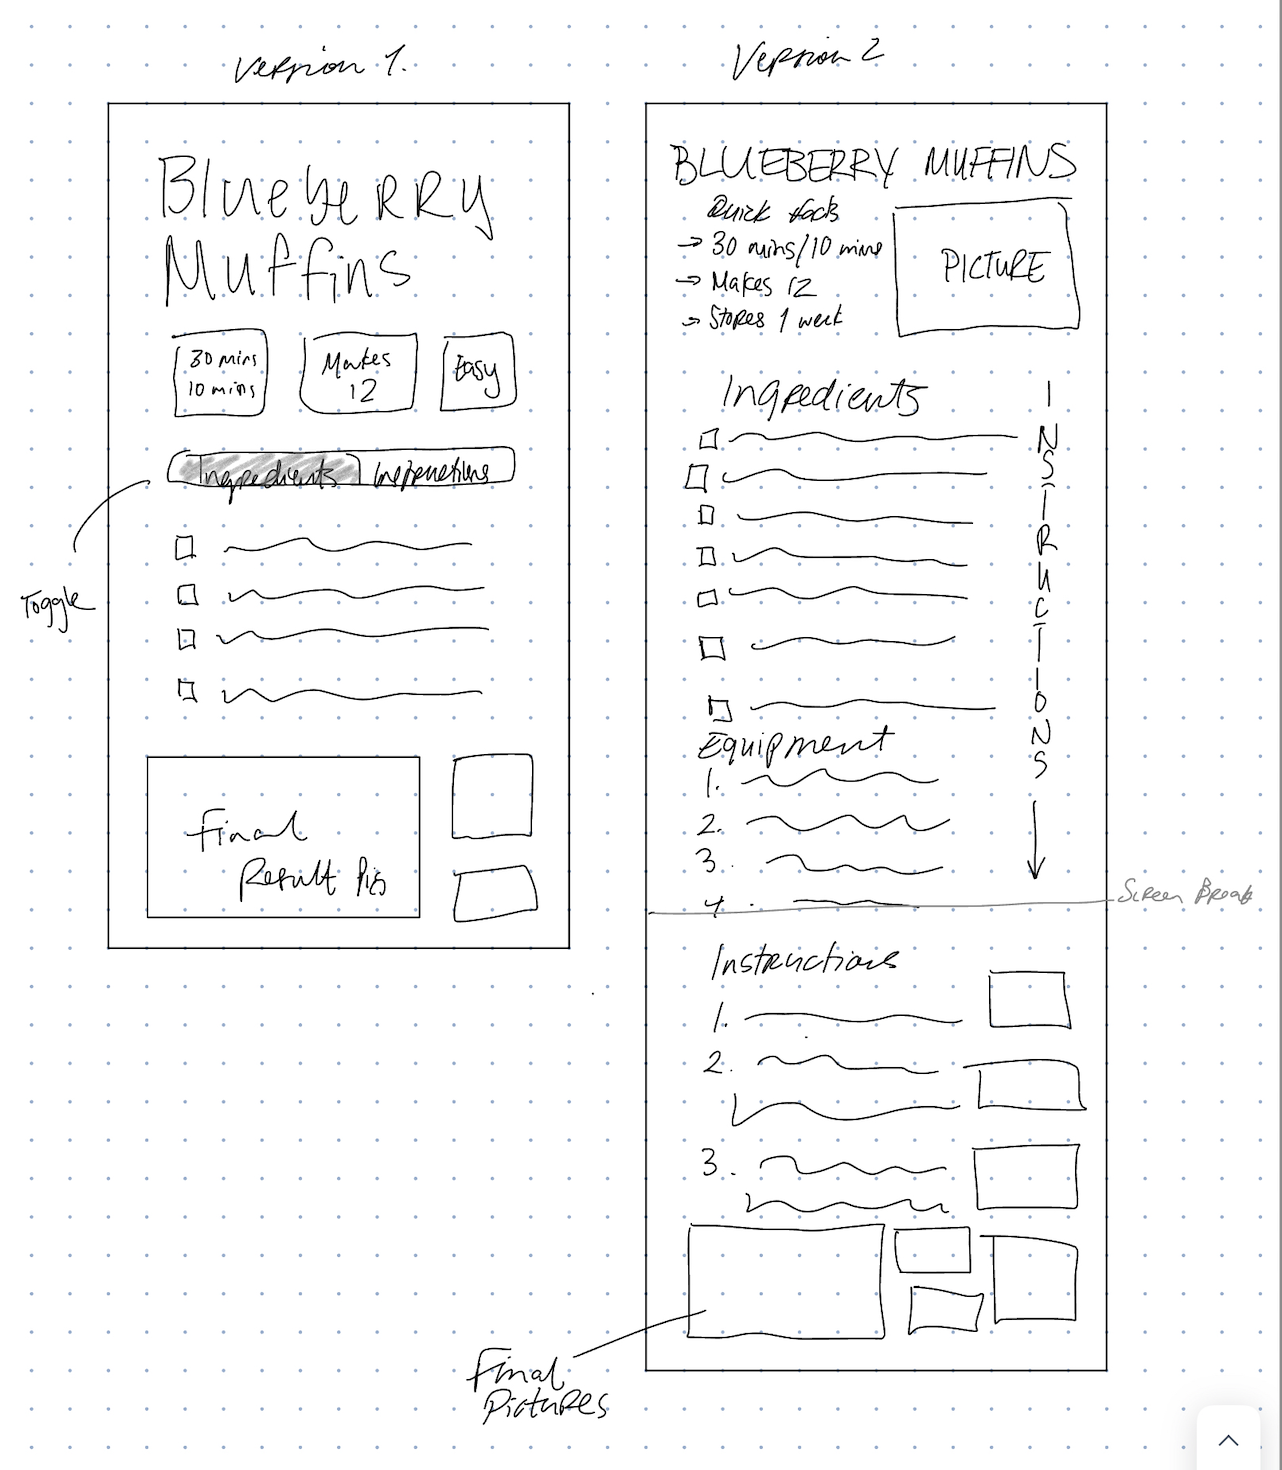 Version 1.
Blueberry
Muffins
30 mins
10 mins
Makes
12
Easy
Ingredients
Instructions
Toggle
Final
Result Pics
Version 2
BLUEBERRY MUFFINS
Quick facts
→ 30 mins/10 mins
→ Makes 12
→ Stores 1 week
PICTURE
Ingredients
INSTRUCTIONS
Equipment
1.
2.
3.
4.
Screen Break
Instructions
1.
2.
3.
Final
Pictures